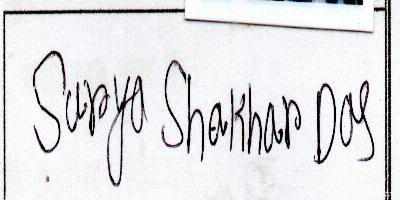 Surya Shakhar Das